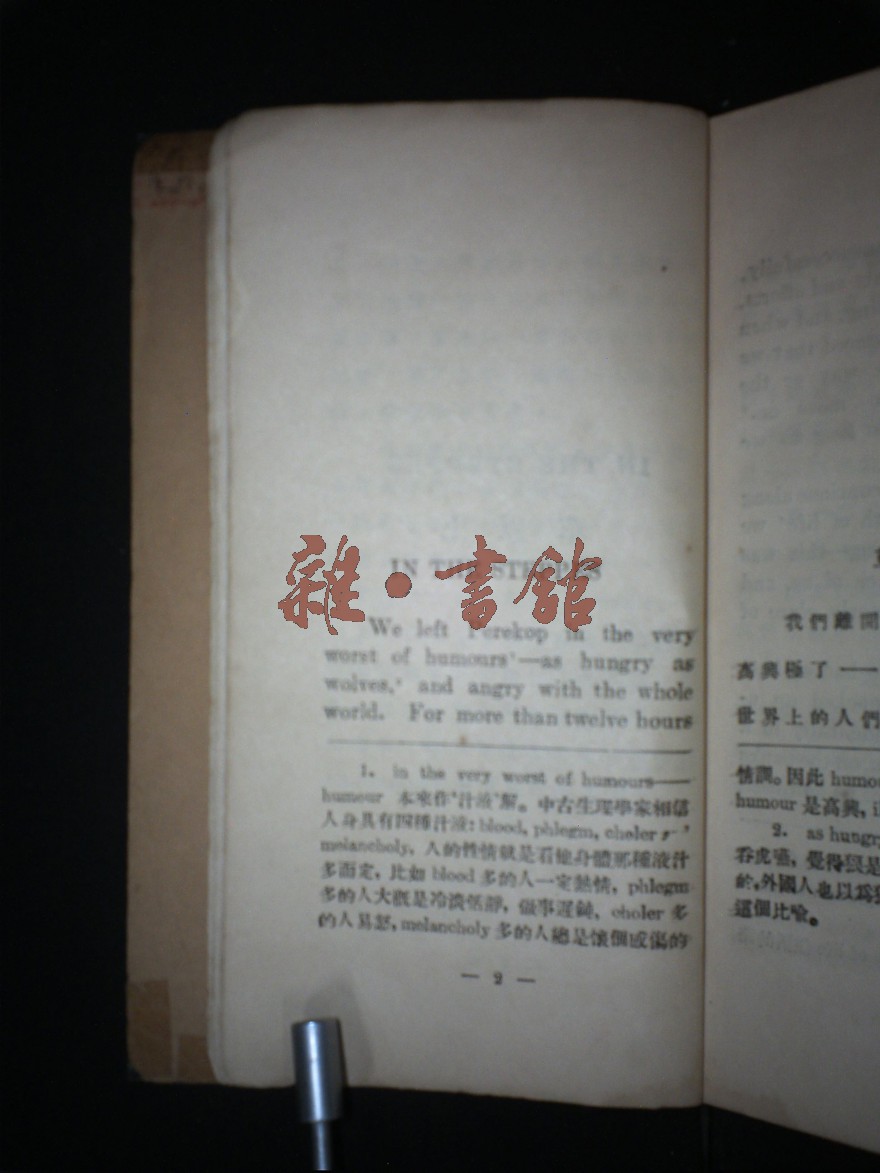 IN THE STEPPES
雜·書館
We left Perekop in the very
worst of humours¹—as hungry as
wolves,² and angry with the whole
world. For more than twelve hours
1. in the very worst of humours——
humour 本來作‘汁液’解。中古生理學家相信
人身具有四種汁液: blood, phlegm, choler
melancholy, 人的性情就是看他身體那種液汁
多而定, 比如 blood 多的人一定熱情, phlegm
多的人大概是冷淡恬靜, 做事遲鈍, choler 多
的人易怒, melancholy 多的人總是懷個感傷的
— 2 —
我們離開
高興極了——
世界上的人們
情調。因此
humour 是高興,
2. as hungry
吞虎嚥, 覺得
的,外國人也以爲
這個比喻。